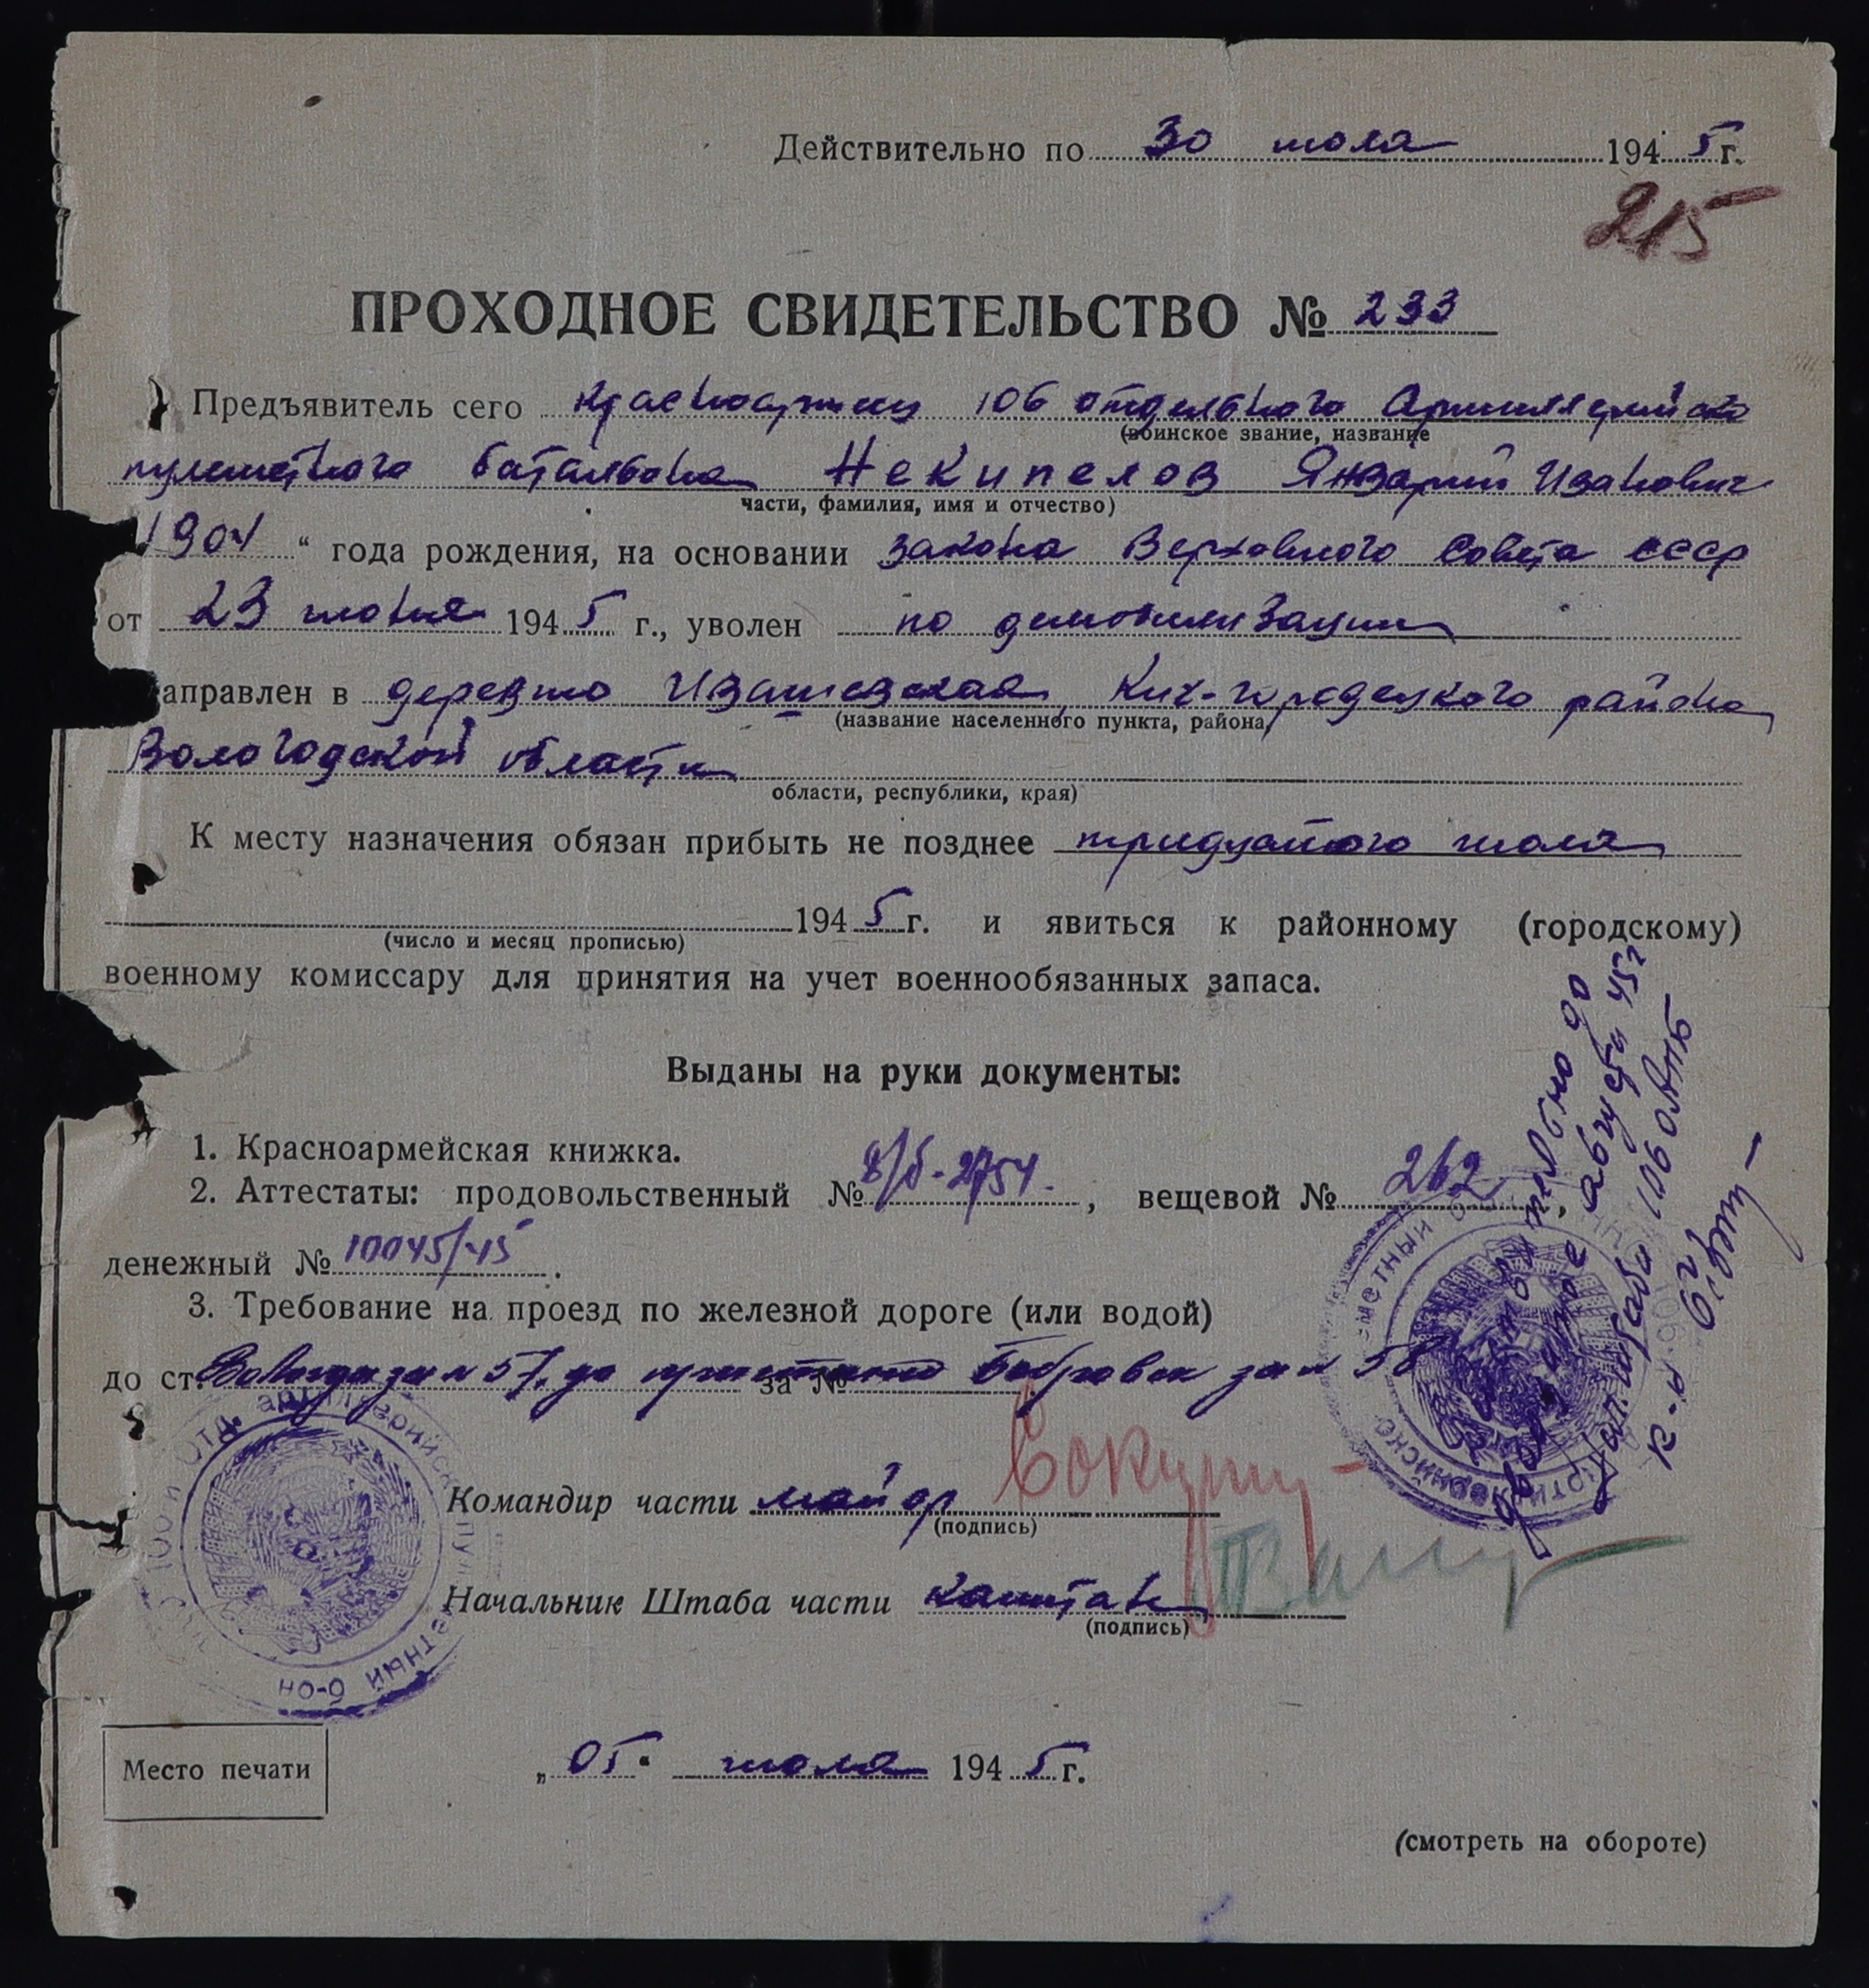 Действительно по 30 июля 1945 г.
215
ПРОХОДНОЕ СВИДЕТЕЛЬСТВО № 233
Предъявитель сего красноармеец 106 отдельного Артиллерийско
(воинское звание, название
пулеметного батальона Некипелов Январий Иванович
части, фамилия, имя и отчество)
1904 “ года рождения, на основании закона Верховного Совета СССР
от 23 июня 1945 г., уволен по демобилизации
аправлен в деревню Ивашевская Кич-городецкого района
(название населенного пункта, района,
Вологодской области
области, республики, края)
К месту назначения обязан прибыть не позднее тридцатого июля
1945 г. и явиться к районному (городскому)
(число и месяц прописью)
военному комиссару для принятия на учет военнообязанных запаса.
Выданы на руки документы:
1. Красноармейская книжка.
2. Аттестаты: продовольственный № , вещевой № 262,
денежный № 10045/45.
3. Требование на проезд по железной дороге (или водой)
до ст. Вологда за № 57, до пристани за № Бобровск за № 58
Действительно до
августа 45г
106 ОАПБ
Командир части майор
(подпись)
Начальник Штаба части капитан
(подпись)
106й отд. артиллерийско пулеметный б-он
Место печати
„05“ июля 1945 г.
(смотреть на обороте)